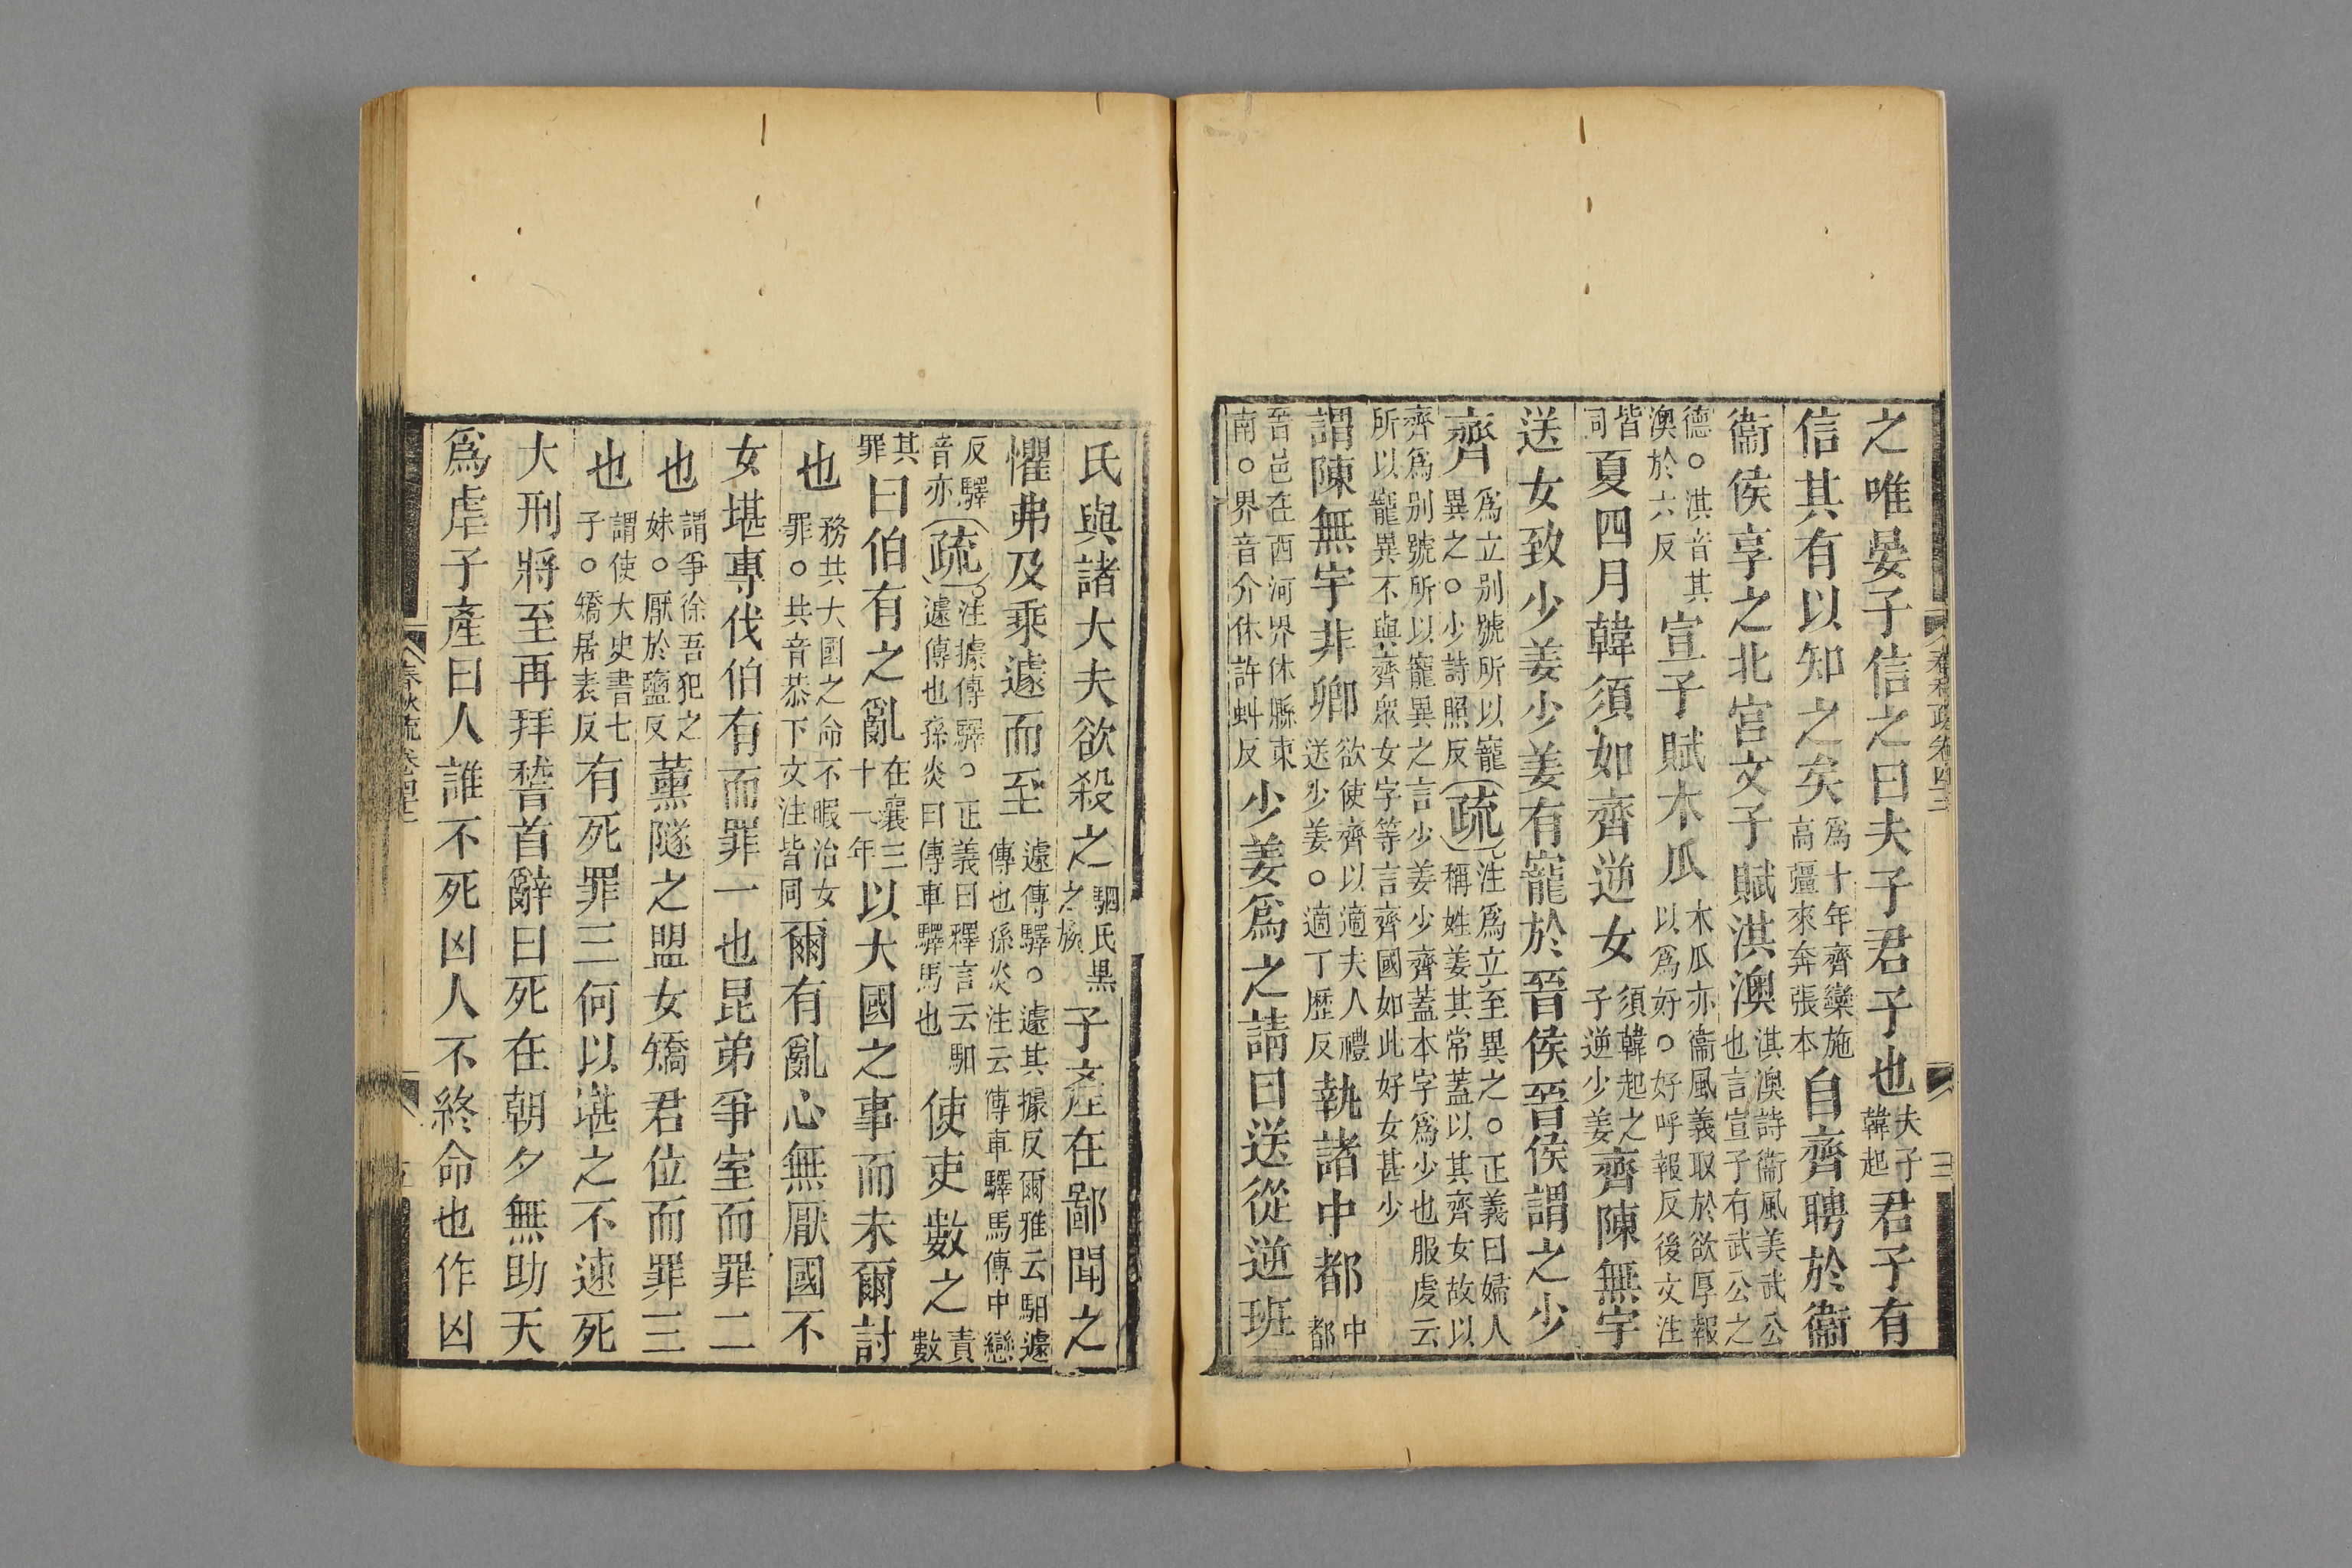 之唯晏子信之曰夫子君子也夫子韓起君子有
信其有以知之矣爲十年齊欒施高彊來奔張本自齊聘於衞
衞侯享之北宮文子賦淇澳淇澳詩衞風美武公也言宣子有武公之
德○淇音其澳於六反宣子賦木瓜木瓜亦衞風義取於欲厚報以爲好○好呼報反後文注
皆同夏四月韓須如齊逆女須韓起之子逆少姜齊陳無宇
送女致少姜少姜有寵於晉侯晉侯謂之少
齊爲立别號所以寵異之○少詩照反疏注爲立至異之○正義曰婦人稱姓姜其常蓋以其齊女故以
齊爲别號所以寵異之言少姜少齊蓋本字爲少也服虔云所以寵異不與齊衆女字等言齊國如此好女甚少
謂陳無宇非卿欲使齊以適夫人禮送少姜○適丁歷反執諸中都中都
晉邑在西河界休縣東南○界音介休許蚪反少姜爲之請曰送從逆班
春秋疏卷四十二
三
氏與諸大夫欲殺之駟氏黑之族子産在鄙聞之
懼弗及乘遽而至遽傳驛○遽其據反爾雅云馹遽傳也孫炎注云傳車驛馬傳中戀
反驛音亦疏注遽傳驛○正義曰釋言云馹遽傳也孫炎曰傳車驛馬也使吏數之責數
其罪曰伯有之亂在襄三十一年以大國之事而未爾討
也務共大國之命不暇治女罪○共音恭下文注皆同爾有亂心無厭國不
女堪專伐伯有而罪一也昆弟爭室而罪二
也謂爭徐吾犯之妹○厭於鹽反薰隧之盟女矯君位而罪三
也謂使大史書七子○矯居表反有死罪三何以堪之不速死
大刑將至再拜稽首辭曰死在朝夕無助天
爲虐子產曰人誰不死凶人不終命也作凶